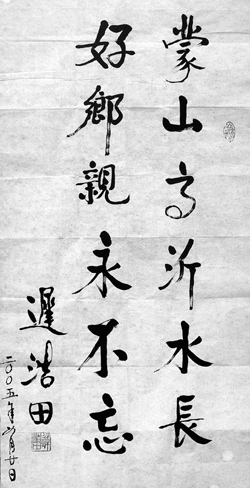 蒙山高沂水長
好鄉親永不忘
遲浩田
二〇〇五年六月廿日